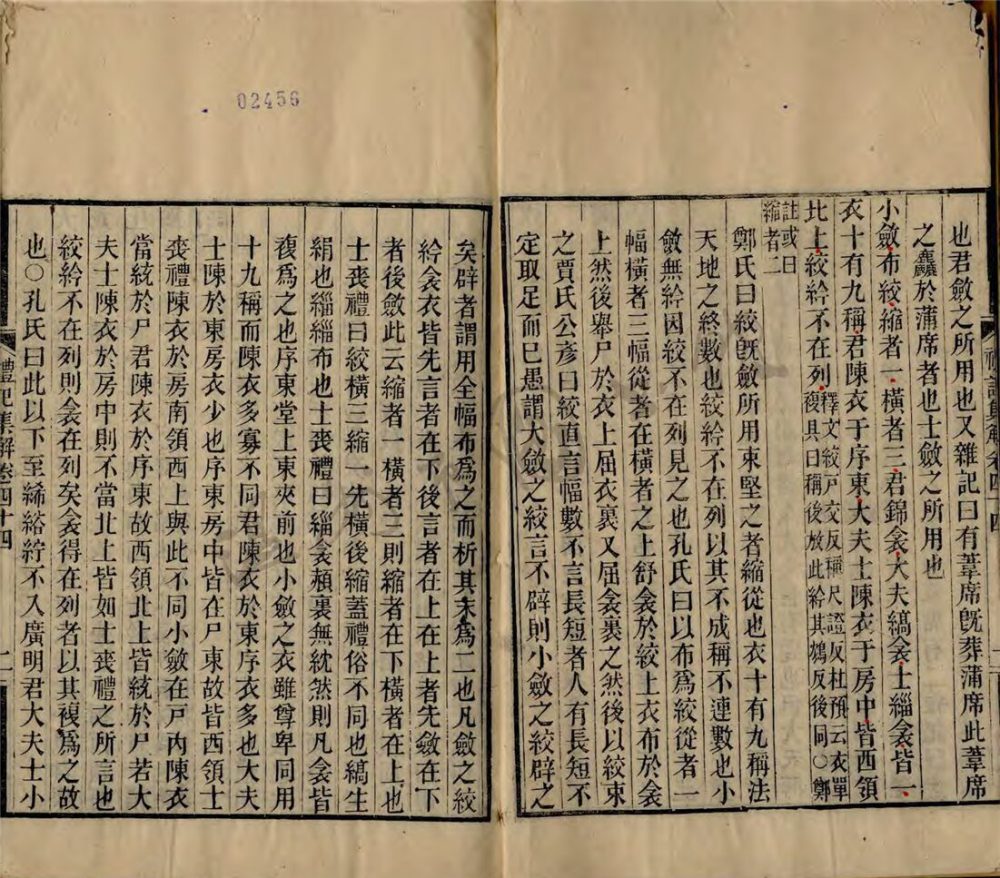 02456
也君斂之所用也又雜記曰有葦席旣葬蒲席此葦席
之麤於蒲席者也士斂之所用也
小斂布絞縮者一橫者三君錦衾大夫縞衾士緇衾皆一
衣十有九稱君陳衣于序東大夫士陳衣于房中皆西領
北上絞紟不在列釋文絞戶交反稱尺證反杜預云衣單
複具曰稱後放此紟其鴆反後同○鄭
註或曰
縮者二
鄭氏曰絞旣斂所用束堅之者縮從也衣十有九稱法
天地之終數也絞紟不在列以其不成稱不連數也小
斂無紟因絞不在列見之也孔氏曰以布爲絞從者一
幅橫者三幅從者在橫者之上舒衾於絞上衣布於衾
上然後舉尸於衣上屈衣裹又屈衾裹之然後以絞束
之賈氏公彥曰絞直言幅數不言長短者人有長短不
定取足而已愚謂大斂之絞言不辟則小斂之絞辟之
矣辟者謂用全幅布爲之而析其末爲二也凡斂之絞
紟衾衣皆先言者在下後言者在上在上者先斂在下
者後斂此云縮者一橫者三則縮者在下橫者在上也
士喪禮曰絞橫三縮一先橫後縮蓋禮俗不同也縞生
絹也緇緇布也士喪禮曰緇衾赬裏無紞然則凡衾皆
複爲之也序東堂上東夾前也小斂之衣雖尊卑同用
十九稱而陳衣多寡不同君陳衣於東序衣多也大夫
士陳於東房衣少也序東房中皆在尸東故皆西領士
喪禮陳衣於房南領西上與此不同小斂在戶內陳衣
當統於尸君陳衣於序東故西領北上皆統於尸若大
夫士陳衣於房中則不當北上皆如士喪禮之所言也
絞紟不在列則衾在列矣衾得在列者以其複爲之故
也○孔氏曰此以下至絺綌紵不入廣明君大夫士小
禮記集解卷四十四